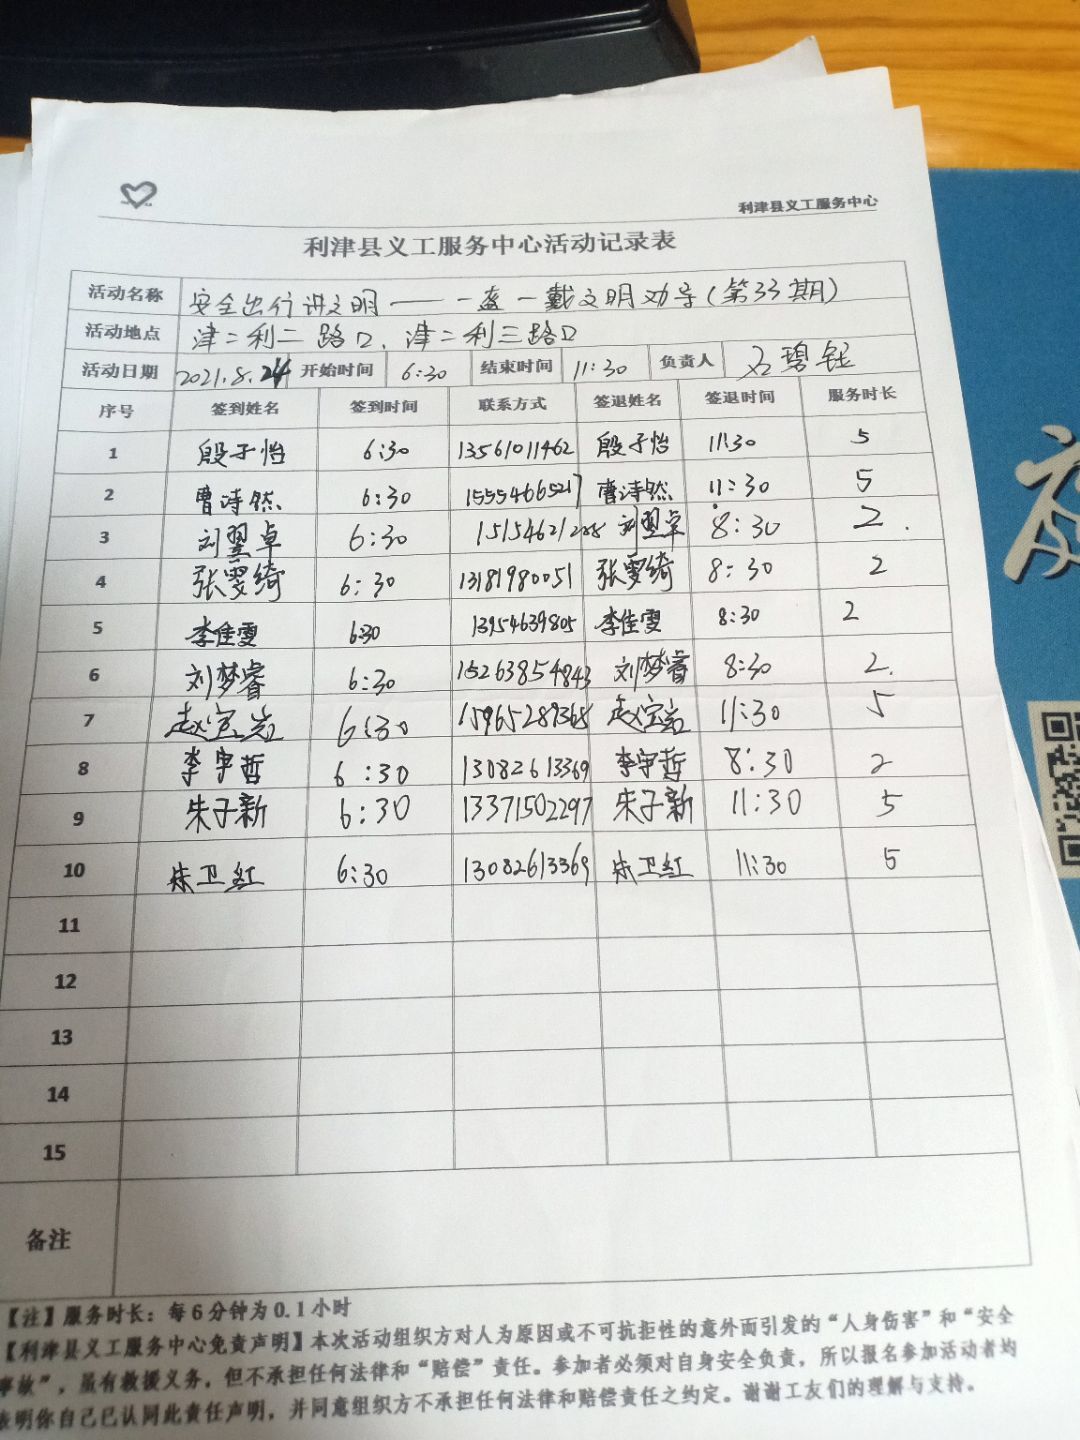 利津县义工服务中心
利津县义工服务中心活动记录表
活动名称 安全出行讲文明——一盔一戴文明劝导(第33期)
活动地点 津二利二路口、津二利三路口
活动日期 2021.8.24 开始时间 6:30 结束时间 11:30 负责人 碧钰
序号 签到姓名 签到时间 联系方式 签退姓名 签退时间 服务时长
1 殷子怡 6:30 13561011462 殷子怡 11:30 5
2 曹诗然 6:30 15554665217 曹诗然 11:30 5
3 刘翌卓 6:30 刘翌卓 8:30 2.
4 张雯绮 6:30 13181980051 张雯绮 8:30 2
5 李佳雯 6:30 13954639805 李佳雯 8:30 2
6 刘梦睿 6:30 15263854843 刘梦睿 8:30 2.
7 6:30 15965289368 11:30 5
8 李宇哲 6:30 13082613369 李宇哲 8:30 2
9 朱子新 6:30 13371502297 朱子新 11:30 5
10 朱卫红 6:30 13082613369 朱卫红 11:30 5
11
12
13
14
15
备注
【注】服务时长：每6分钟为0.1小时
【利津县义工服务中心免责声明】本次活动组织方对人为原因或不可抗拒性的意外而引发的“人身伤害”和“安全
事故”，虽有救援义务，但不承担任何法律和“赔偿”责任。参加者必须对自身安全负责，所以报名参加活动者均
表明你自己已认同此责任声明，并同意组织方不承担任何法律和赔偿责任之约定。谢谢工友们的理解与支持。